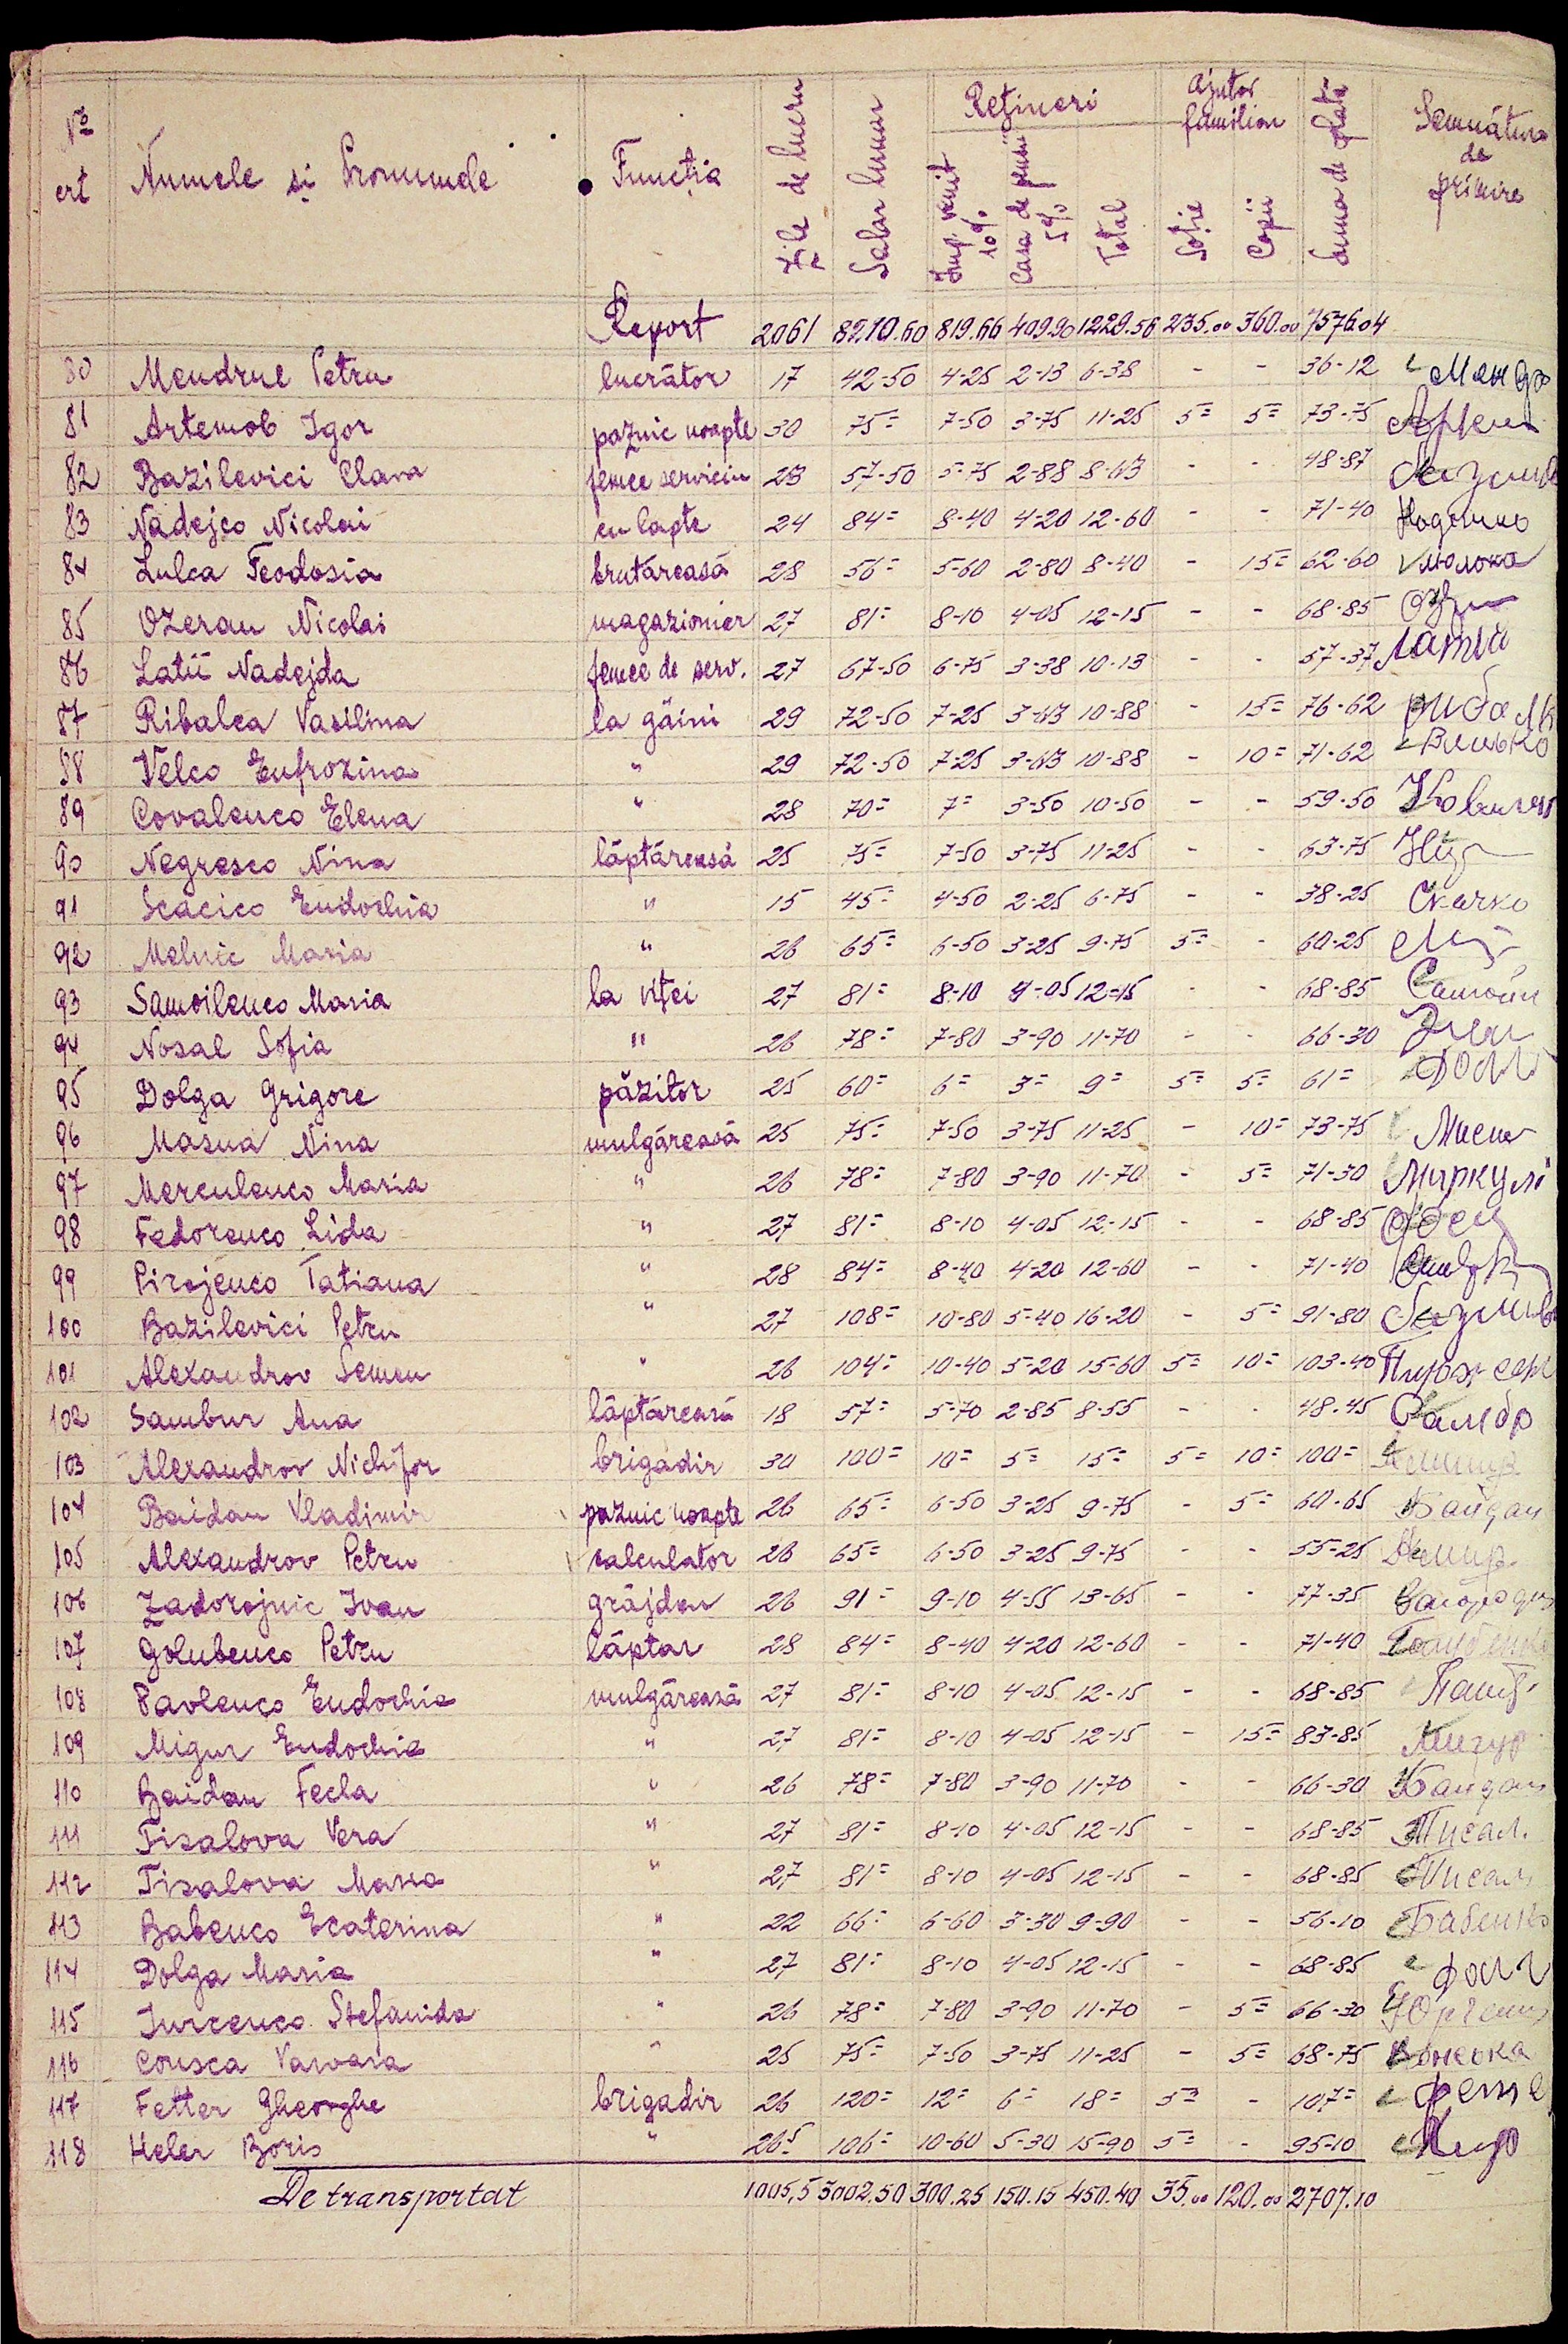 No crt Numele si Pronumele Funcția Zile de lucru Salar lunar Rețineri Ajutor familiar Suma de plată Semnătura de primire
Imp. venit 10% Casa de pensii 5% Total Soție Copii
Report 2061 8210.60 819.66 409.90 1229.56 235.00 360.00 7576.04
80 Mendrul Petru lucrător 17 42-50 4-25 2-13 6-38 - - 36-12
81 Artemob Igor paznic noapte 30 75= 7-50 3-75 11-25 5= 5= 73-75
82 Bazilevici Clara femee serviciu 23 57-50 5-75 2-88 8-63 - - 48-87
83 Nadejco Nicolai cu lapte 24 84= 8-40 4-20 12-60 - - 71-40
84 Lulca Feodosia brutăreasă 28 56= 5-60 2-80 8-40 - 15= 62-60 Люлока
85 Ozeran Nicolai magazioner 27 81= 8-10 4-05 12-15 - - 68-85
86 Latîi Nadejda femee de serv. 27 67-50 6-75 3-38 10-13 - - 57-37 Латій
87 Ribalca Vasilina la găini 29 72-50 7-25 3-63 10-88 - 15= 76-62
88 Velco Eufrozina " 29 72-50 7-25 3-63 10-88 - 10= 71-62
89 Covalenco Elena " 28 70= 7= 3-50 10-50 - - 59-50
90 Negresco Nina lăptăreasă 25 75= 7-50 3-75 11-25 - - 63-75
91 Scacico Eudochia " 15 45= 4-50 2-25 6-75 - - 38-25 Скачко
92 Melnic Maria " 26 65= 6-50 3-25 9-75 5= - 60-25
93 Samoilenco Maria la viței 27 81= 8-10 4-05 12-15 - - 68-85
94 Nosal Sofia " 26 78= 7-80 3-90 11-70 - - 66-30
95 Dolga Grigore păzitor 25 60= 6= 3= 9= 5= 5= 61=
96 Masna Nina mulgăreasă 25 75= 7-50 3-75 11-25 - 10= 73-75
97 Merculenco Maria " 26 78= 7-80 3-90 11-70 - 5= 71-30
98 Fedorenco Lida " 27 81= 8-10 4-05 12-15 - - 68-85
99 Pirojenco Tatiana " 28 84= 8-40 4-20 12-60 - - 71-40
100 Bazilevici Petru " 27 108= 10-80 5-40 16-20 - 5= 91-80
101 Alexandrov Semen " 26 104= 10-40 5-20 15-60 5= 10= 103-40
102 Sambur Ana lăptăreasă 18 57= 5-70 2-85 8-55 - - 48-45 Самбр
103 Alexandrov Nichifor brigadir 30 100= 10= 5= 15= 5= 10= 100=
104 Baidan Vladimir paznic noapte 26 65= 6-50 3-25 9-75 - 5= 60-65 Байдан
105 Alexandrov Petru calculator 26 65= 6-50 3-25 9-75 - - 55-25
106 Zadorojnic Ivan grăjdar 26 91= 9-10 4-55 13-65 - - 77-35
107 Golubenco Petru lăptar 28 84= 8-40 4-20 12-60 - - 71-40 Голубенко
108 Pavlenco Eudochia mulgăreasă 27 81= 8-10 4-05 12-15 - - 68-85
109 Migur Eudochia " 27 81= 8-10 4-05 12-15 - 15= 83-85 Мигур
110 Baidan Fecla " 26 78= 7-80 3-90 11-70 - - 66-30 Байдан
111 Tisalova Vera " 27 81= 8-10 4-05 12-15 - - 68-85 Тисал.
112 Tisalova Maria " 27 81= 8-10 4-05 12-15 - - 68-85 Тисал
113 Babenco Ecaterina " 22 66= 6-60 3-30 9-90 - - 56-10 Бабенко
114 Dolga Maria " 27 81= 8-10 4-05 12-15 - - 68-85
115 Iurcenco Stefanida " 26 78= 7-80 3-90 11-70 - 5= 66-30
116 Consca Varvara " 25 75= 7-50 3-75 11-25 - 5= 68-75 Конска
117 Fetter Gheorghe brigadir 26 120= 12= 6= 18= 5= - 107=
118 Heler Boris " 26,5 106= 10-60 5-30 15-90 5= - 95-10
De transportat 1005,5 3002.50 300.25 150.15 450.40 35.00 120.00 2707.10